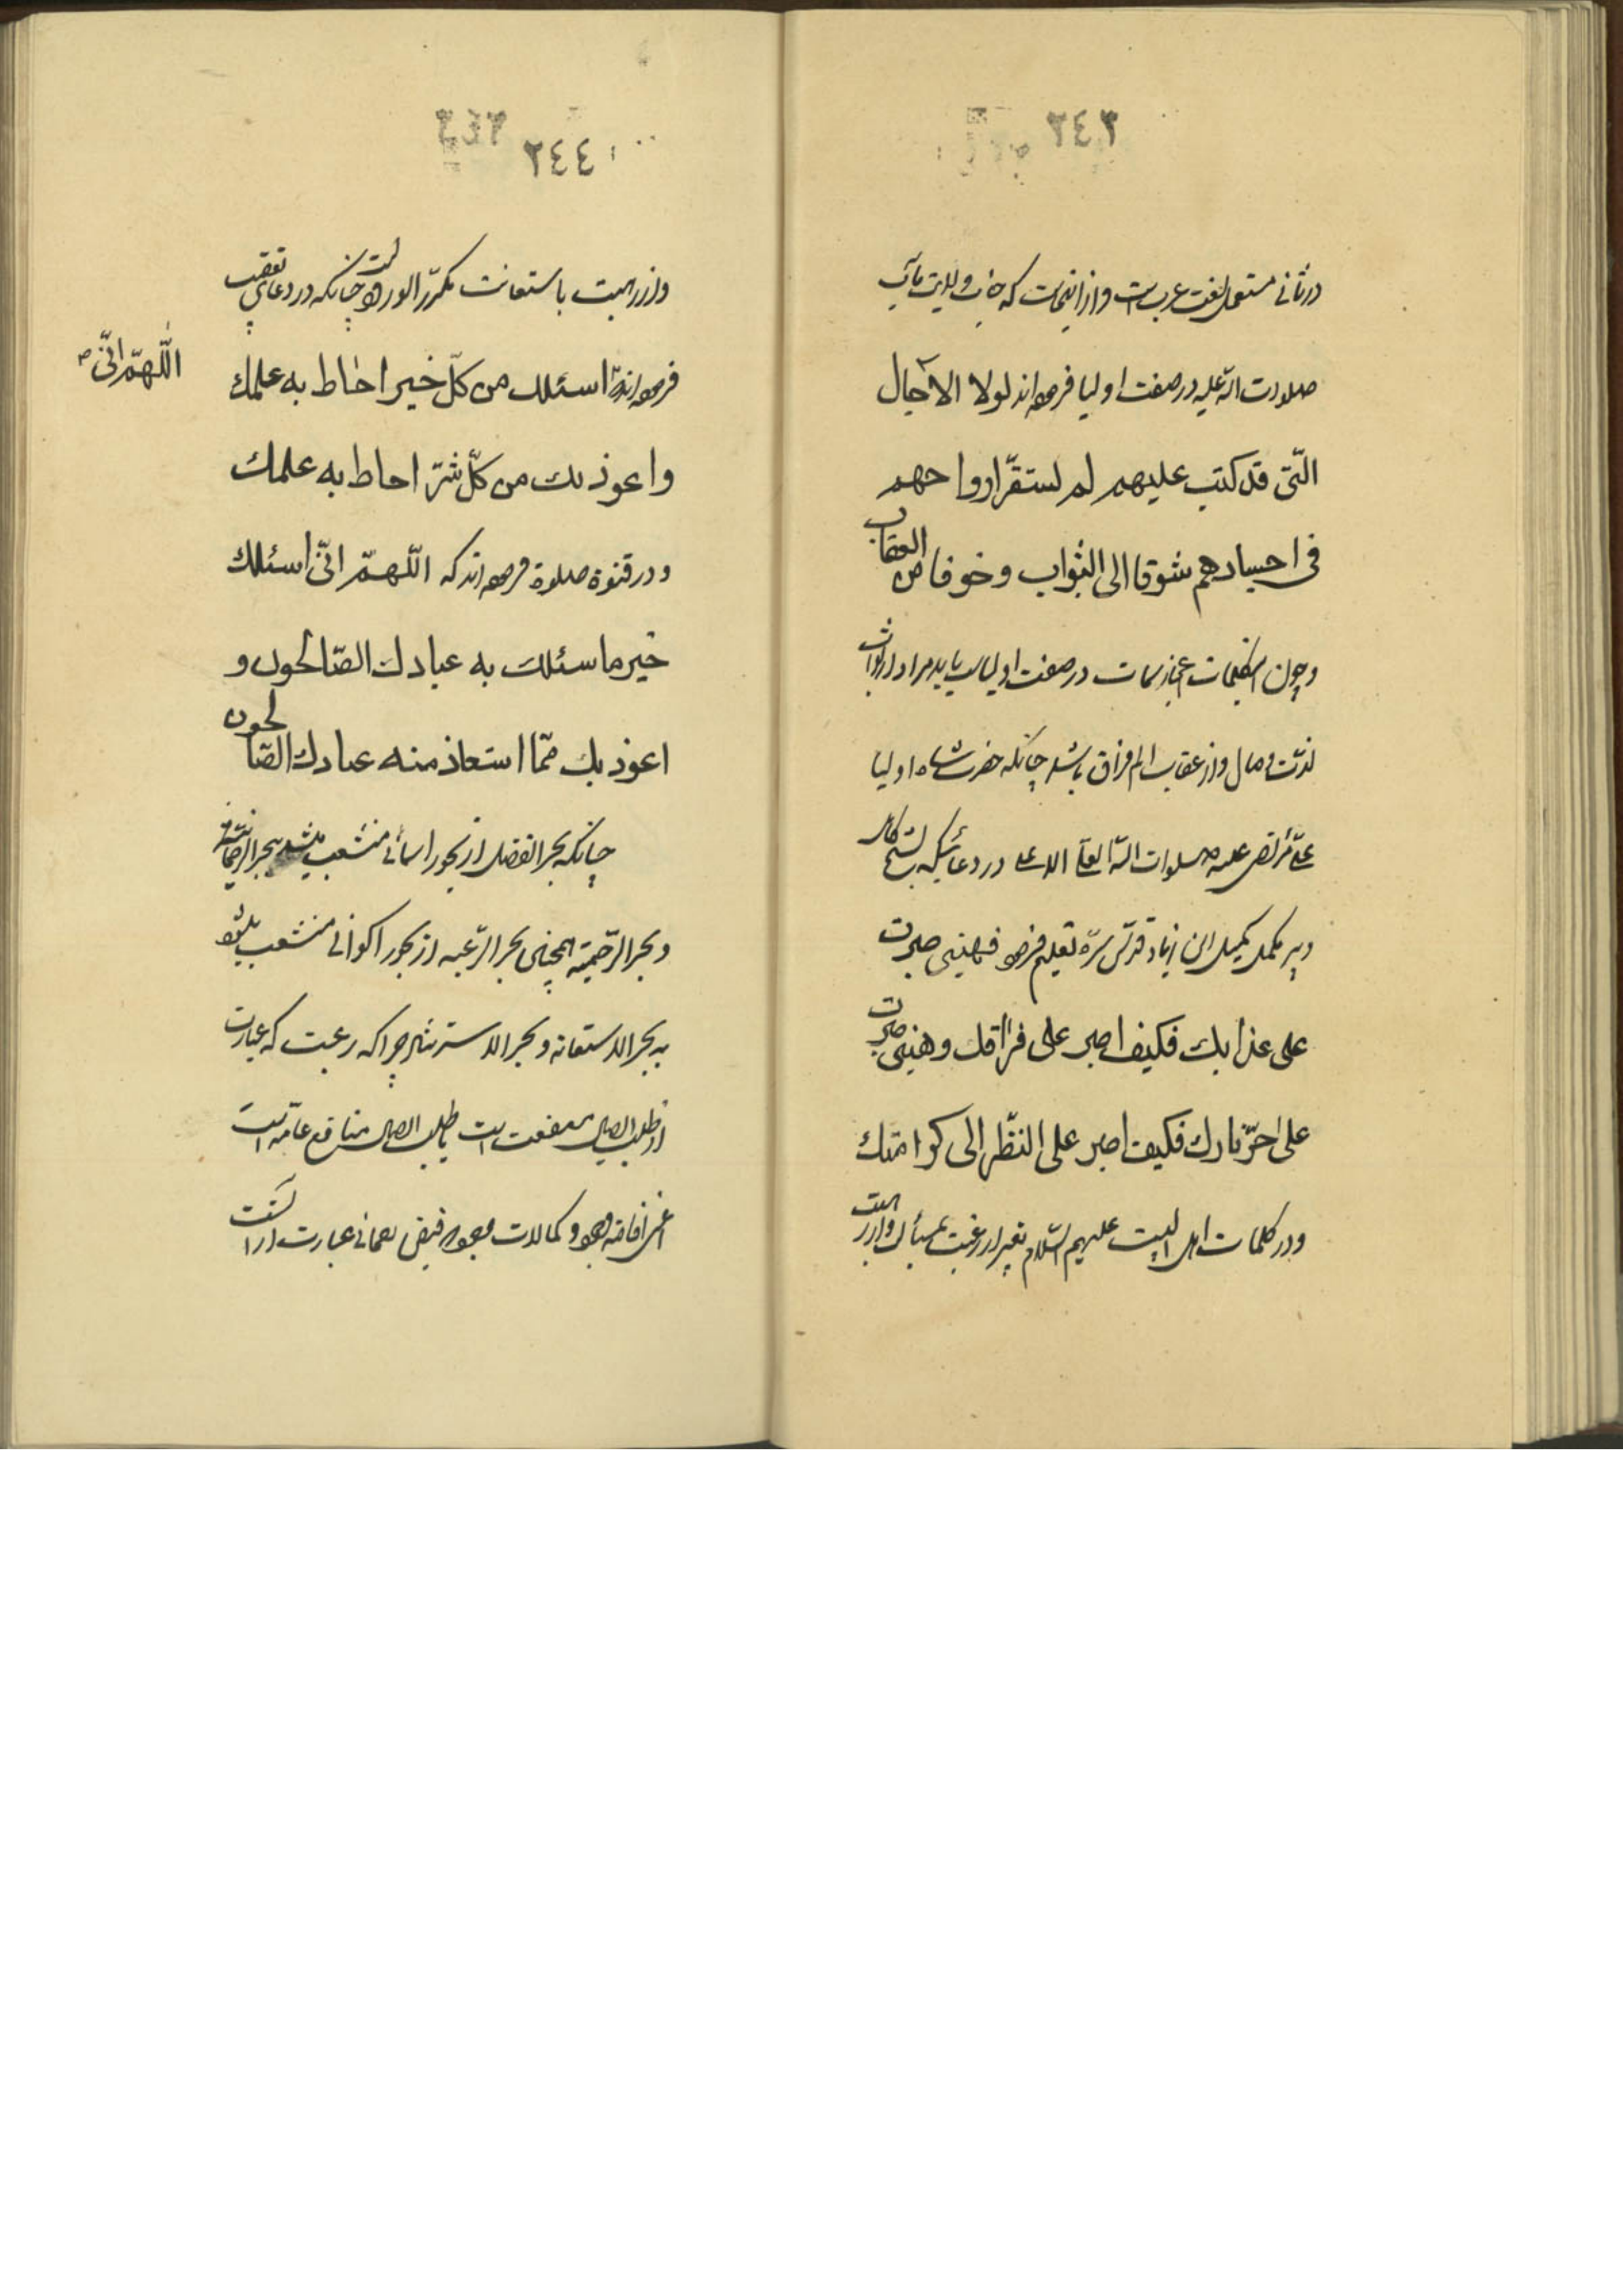 ٢٤٣
در ثانی مستعمل لغت عرب است و از اینجاست که جناب ولایت مآب
صلوات الله علیه در صفت اولیا فرموده اند لولا الآجال
الّتی قد کتب علیهم لم تستقرّ ارواحهم
فی اجسادهم شوقا الی الثواب و خوفا من العقاب
و چون کلمات اعجاز سمات در صفت اولیاست باید مراد از ثواب
لذّت وصال و از عقاب الم فراق باشد چنانکه حضرت شاه اولیا
علیّ مرتضی علیه صلوات الله العلی الاعلی در دعائیکه بشیخ کامل
و پیر مکمل کمیل ابن زیاد قدّس سرّه تعلیم فرموده فهبنی صبرت
علی عذابك فکیف اصبر علی فراقك و هبنی صبرت
علی حرّ نارك فکیف اصبر علی النظر الی کرامتك
و در کلمات اهل البیت علیهم السّلام تعبیر از رغبت بمسألت و از رهبت
٢٤٤
و از رهبت باستعانت مکرّر الورود است چنانکه در دعای تعقیب
فرموده اند اسئلك من کلّ خیر احاط به علمك
اللّهمّ انّی
و اعوذ بك من کلّ شرّ احاط به علمك
و در قنوت صلوة فرموده اند که اللّهمّ انّی اسئلك
خیر ما سئلك به عبادك الصّالحون و
اعوذ بك ممّا استعاذ منه عبادك الصّالحون
چنانکه بحر الفضل از بحور اسمائی منشعب میشد ببحر الرحمانیة
و بحر الرّحیمیّة همچنین بحر الرّغبه از بحور اکوانی منشعب میشود
به بحر الاستعانه و بحر الاسترشاد چرا که رغبت که عبارت
از طلب ایصال منفعت است یا طلب ایصال منافع عامّه است
اعنی افاضه وجود و کمالات وجود و فیض رحمانی عبارت از آنست